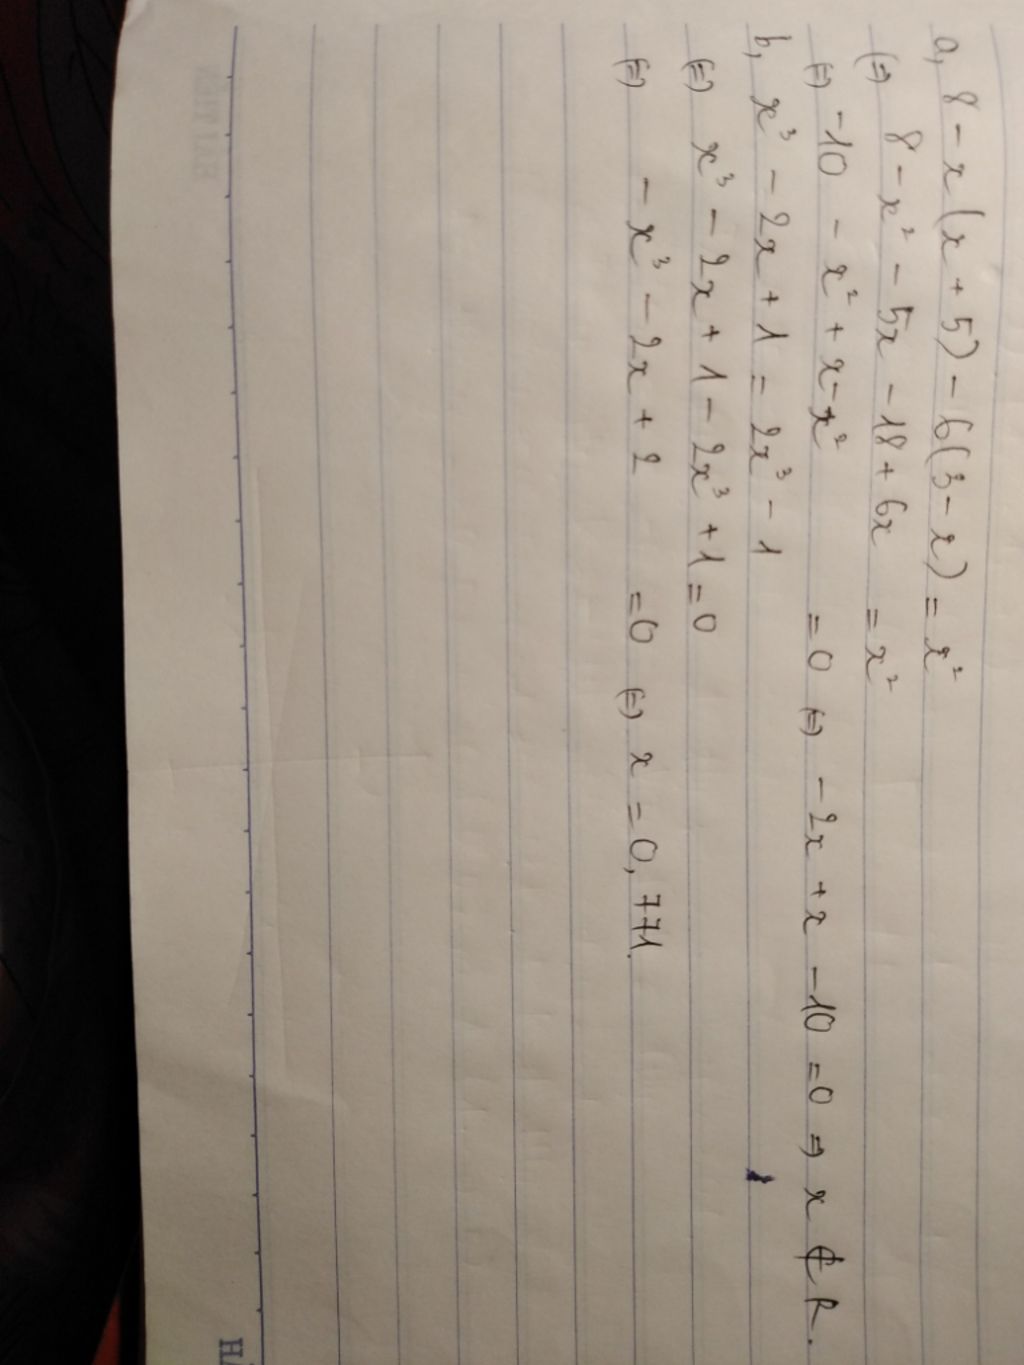 a, 8 - x(x + 5) - 6(3 - x) = x²
(=) 8 - x² - 5x - 18 + 6x = x²
(=) -10 - x² + x - x² = 0 (=) - 2x + x - 10 = 0 => x ∉ R.
b, x³ - 2x + 1 = 2x³ - 1
(=) x³ - 2x + 1 - 2x³ + 1 = 0
(=) - x³ - 2x + 2 = 0 (=) x = 0,771.